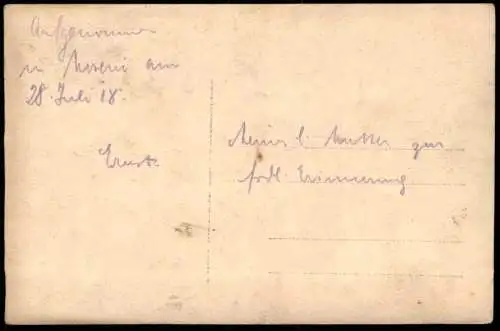 Aufgenommen
in Moreni am
28. Juli 18.
Ernst.
Meiner l. Mutter zur
frdl. Erinnerung